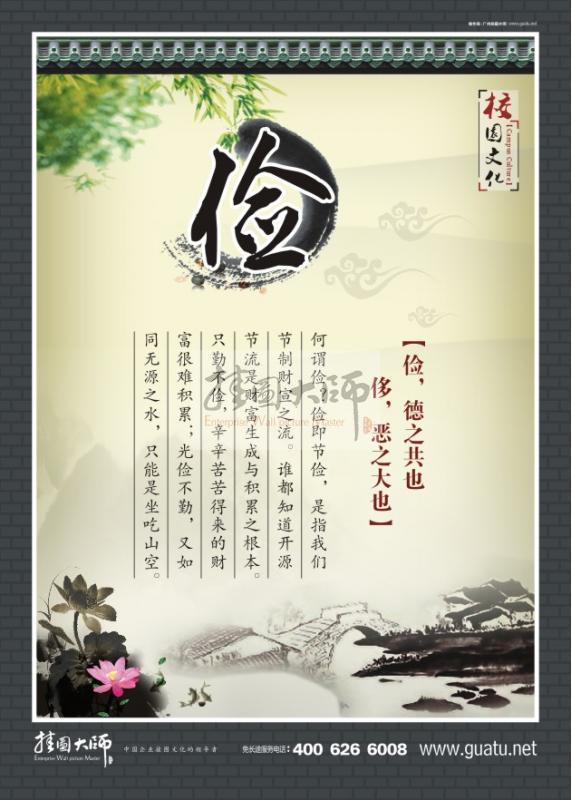 制作商：广州挂图大师 | www.guatu.net
校园文化
【Campus Culture】
俭
【俭，德之共也
侈，恶之大也】
何谓俭？俭即节俭，是指我们
节制财富之流。谁都知道开源
节流是财富生成与积累之根本。
只勤不俭，辛辛苦苦得来的财
富很难积累；光俭不勤，又如
同无源之水，只能是坐吃山空。
挂图大师
Enterprise Wall picture Master
挂图大师
Enterprise Wall picture Master
中国企业挂图文化的领导者
免长途服务电话：400 626 6008
www.guatu.net